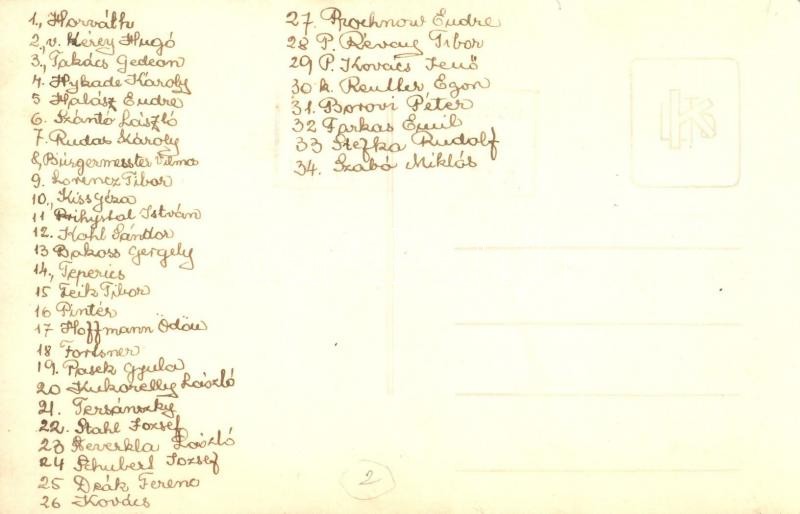 1., Horváth
2., v. Kérey Hugó
3., Takács Gedeon
4. Hykade Károly
5 Halász Endre
6. Szántó László
7. Rudas Károly
8., Bürgermesster Vilmo
9. Lorencz Tibor
10., Kiss Géza
11 Prihystal István
12. Kohl Sándor
13 Bakoss Gergely
14., Teperics
15 Zeik Tibor
16 Pintér
17 Hoffmann Ödön
18 Fortsner
19. Pasek Gyula
20 Kukorelly László
21. Tersánszky
22. Stahl József
23 Neverkla László
24 Schubert József
25 Deák Ferenc
26 Kovács
27. Prochnow Endre
28 P. Révay Tibor
29 P. Kovács Jenő
30 k. Reutter Egon
31. Borovi Péter
32 Farkas Emil
33 Stefka Rudolf
34. Szabó Miklós
2